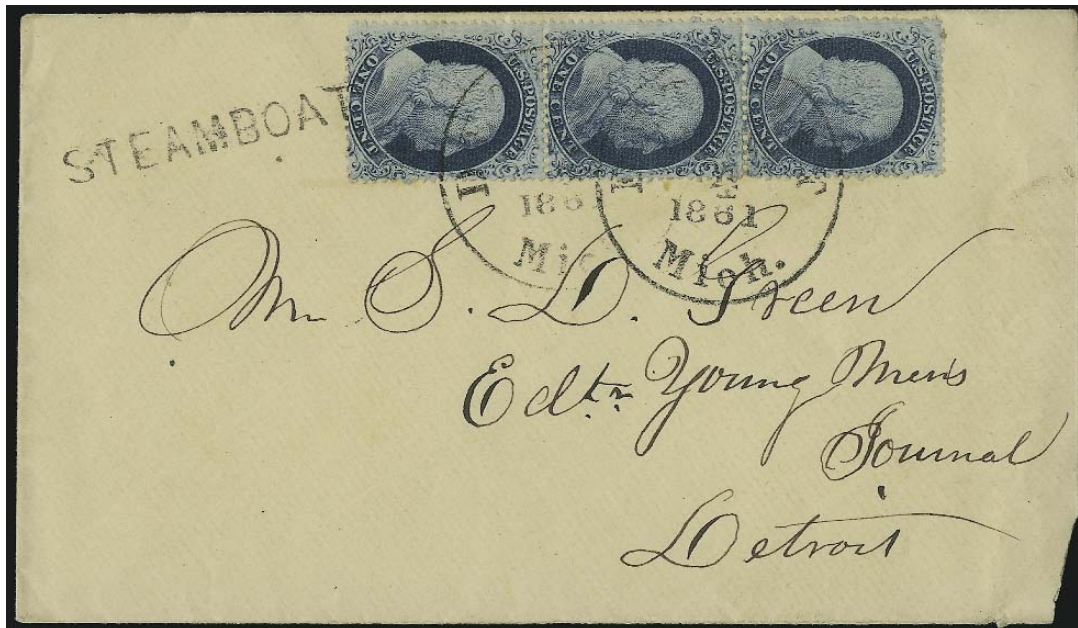 STEAMBOAT
U.S. POSTAGE. ONE CENT.
U.S. POSTAGE. ONE CENT.
U.S. POSTAGE. ONE CENT.
1861
Mic
1861
Mich.
Mr S. D. Green
Edtr Young Mens
Journal
Detroit